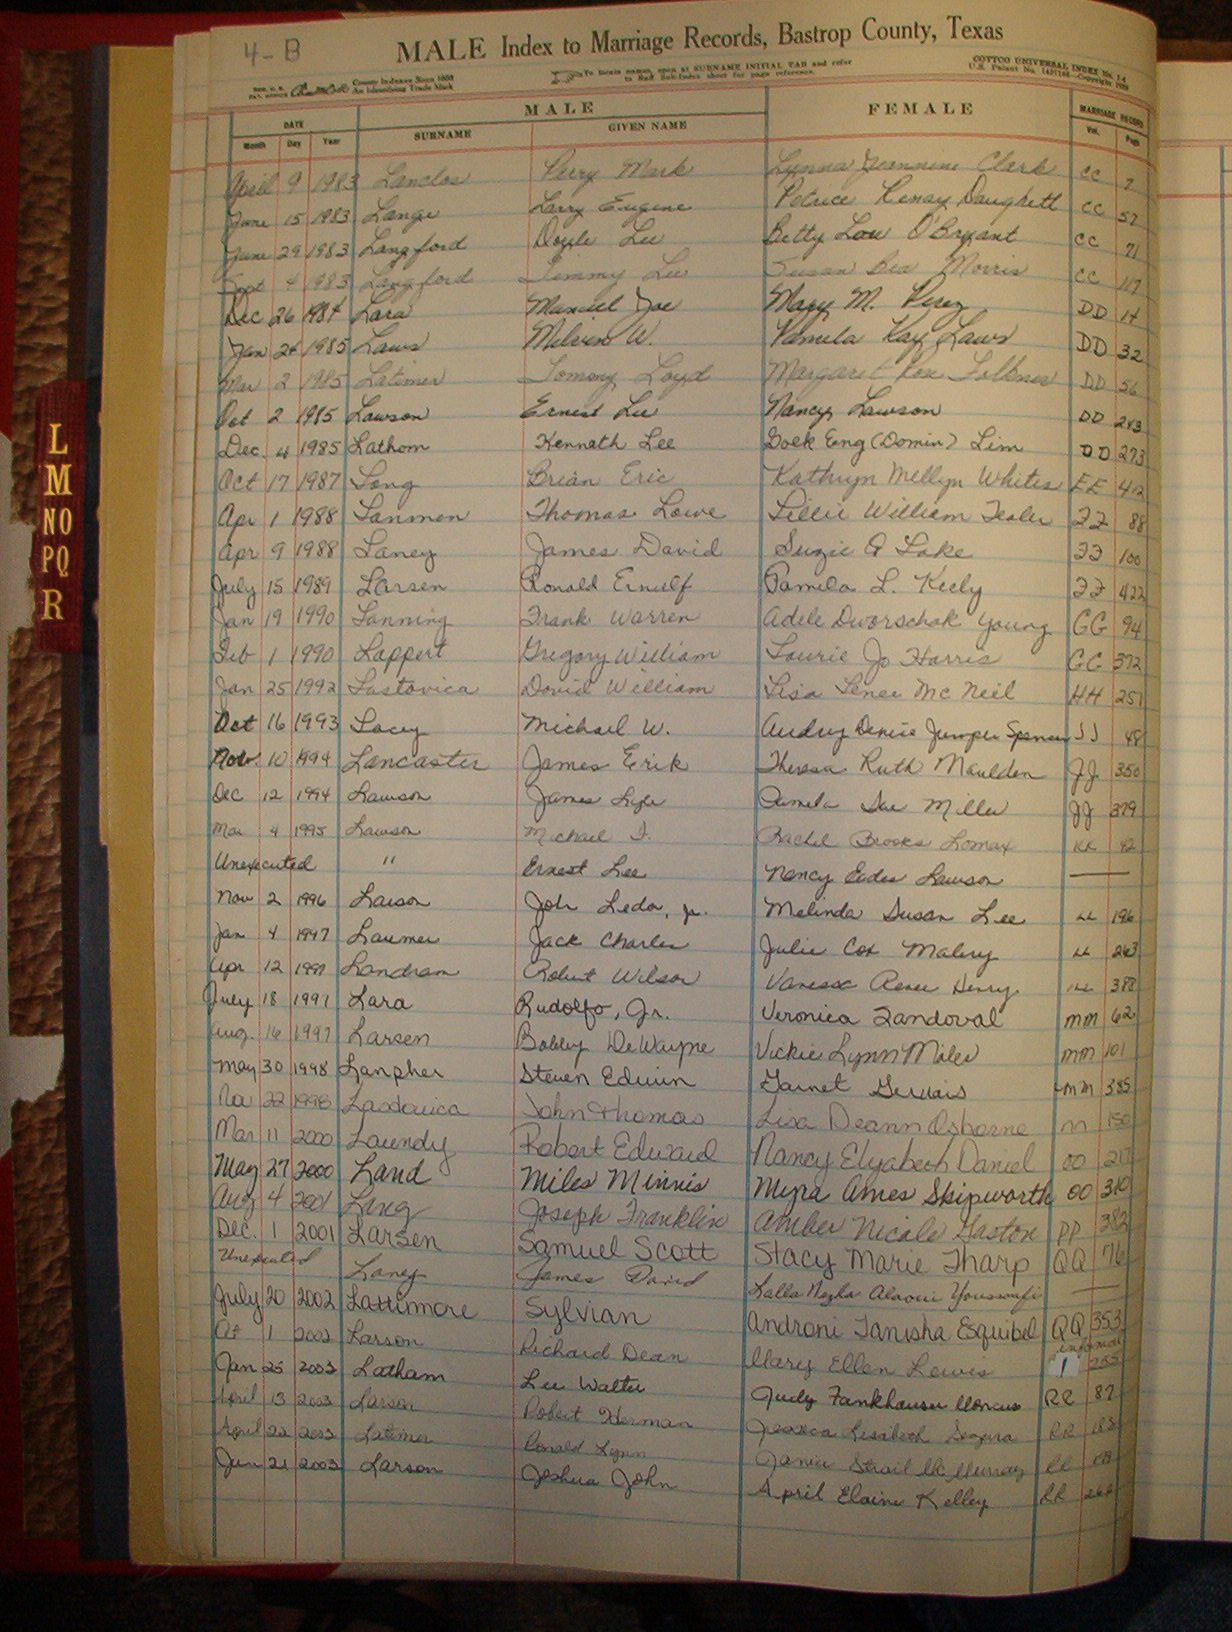 4-B
MALE Index to Marriage Records, Bastrop County, Texas
County Indexes Since 1888
An Identifying Trade Mark
To locate names, open at SURNAME INITIAL TAB and refer
to Sub-Index sheet for page reference.
COTTCO UNIVERSAL INDEX No. 14
DATE MALE FEMALE MARRIAGE RECORD
Month Day Year SURNAME GIVEN NAME Vol. Page
April 9 1983 Lanclos Perry Mark Lynna Jeannine Clark CC 7
June 15 1983 Lange Larry Eugene Patrice Renay Daughett CC 57
June 29 1983 Langford Doyle Lee Betty Lou O'Bryant CC 71
Sept 4 1983 Langford Jimmy Lee Susan Bea Morris CC 117
Dec 26 1984 Lara Manuel Joe Mary M. Perez DD 14
Jan 24 1985 Laws Melvin W. Pamela Kay Laws DD 32
Mar 2 1985 Latimer Tommy Loyd Margaret Folkner DD 56
Oct 2 1985 Lawson Ernest Lee Nancy Lawson DD 243
Dec. 4 1985 Lathom Kenneth Lee Goek Eng (Domin) Lim DD 273
Oct 17 1987 Long Brian Eric Kathryn Mellyn Whites EE 412
Apr 1 1988 Lanmon Thomas Lowe Lillie William Tesler FF 88
Apr 9 1988 Laney James David Suzie A Lake FF 100
July 15 1989 Larsen Ronald Ernulf Pamela L. Keely FF 422
Jan 19 1990 Lanning Frank Warren Adele Dworschak Young GG 94
Feb 1 1990 Lappert Gregory William Laurie Jo Harris GG 372
Jan 25 1992 Lastovica David William Lisa Lenee McNeil HH 251
Oct 16 1993 Lacey Michael W. Audry Denise Jumper Spencer JJ 48
Nov. 10 1994 Lancaster James Erik Theresa Ruth Maulden JJ 350
Dec 12 1994 Lawson James Lyle Pamela Sue Miller JJ 379
Mar 4 1995 Lawson Michael Rachel Brooks Lomax KK 82
Unexecuted " Ernest Lee Nancy Lawson —
Nov 2 1996 Lawson Joh Ledor, Jr. Melinda Susan Lee LL 196
Jan 4 1997 Laumer Jack Charles Julie Cox Malery LL 263
Apr 12 1997 Landram Robert Wilson Vanessa Renee Henry LL 388
July 18 1997 Lara Rudolfo, Jr. Veronica Zandoval MM 62
Aug. 16 1997 Larsen Bobby DeWayne Vickie Lynn Miles MM 101
May 30 1998 Lanpher Steven Edwin Garnet Gervais MM 385
Nov 22 1998 Lastovica John Thomas Lisa Deann Osborne NN 150
Mar 11 2000 Laundy Robert Edward Nancy Elyabeth Daniel OO 217
May 27 2000 Land Miles Minnis Myra Ames Skipworth OO 310
Aug 4 2001 Lang Joseph Franklin Amber Nicole Gaston PP 382
Dec. 1 2001 Larsen Samuel Scott Stacy Marie Tharp QQ 76
Unexecuted Laney James David Lalla Nezha Alaoui Youssoufi —
July 20 2002 Lattimore Sylvian Androni Tanisha Esquibel QQ 353
1 2002 Larson Richard Dean Mary Ellen Lewis informal 1 255
Jan 25 2003 Latham Lee Walter Judy Fankhauser Moncus RR 87
April 13 2003 Larson Robert Herman RR
April 22 2003 Latimer Ronald Lynn Janie Strait McMurray RR
Jun 21 2003 Larson Joshua John April Elaine Kelley RR
L
M
NO
PQ
R